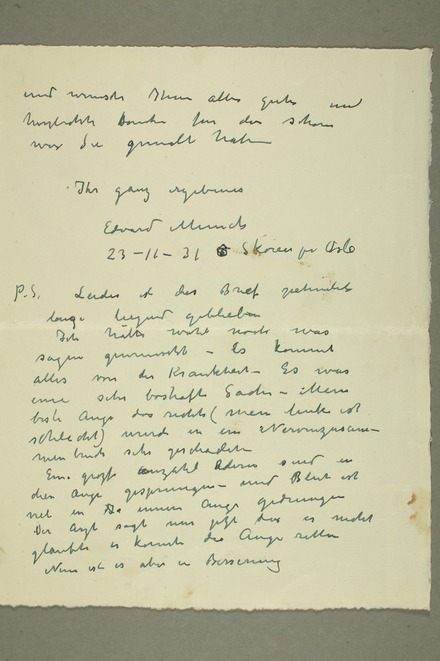 und wünsche Ihnen alles gute und
herzlichst danke für das schöne
was Sie gemalt haben
Ihr ganz ergebenes
Edvard Munch
23-11-31 Skøien pr Oslo
P.S. Leider ist der Brief
lange liegend geblieben
Ich hätte wohl noch was
sagen gewünscht – Es kommt
alles von der Krankheit – Es war
eine sehr boshafte Sache – Mein
beste Auge das rechte (mein linke ist
schlecht) wurde in ein Nervenzusam-
menbruch sehr geschaden
Ein gross Anzahl Adern sind in
dem Auge gesprungen – und Blut ist
viel in Auge gedrungen
Der Arzt sagt mir jetzt das er nicht
glaubte er konnte das Auge retten
Nun ist es aber in Besserung